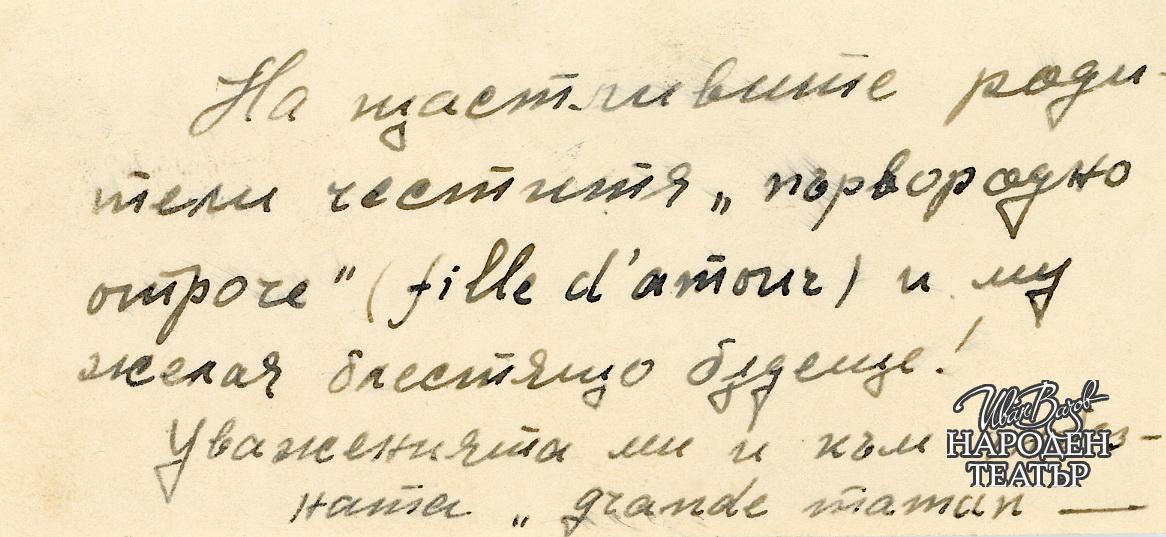 На щастливите роди-
тели честитя „първородно
отроче" (fille d'amour) и му
желая блестящо бъдеще!
Уваженията ми и към
ната „grande maman —
Иван Вазов
НАРОДЕН
ТЕАТЪР